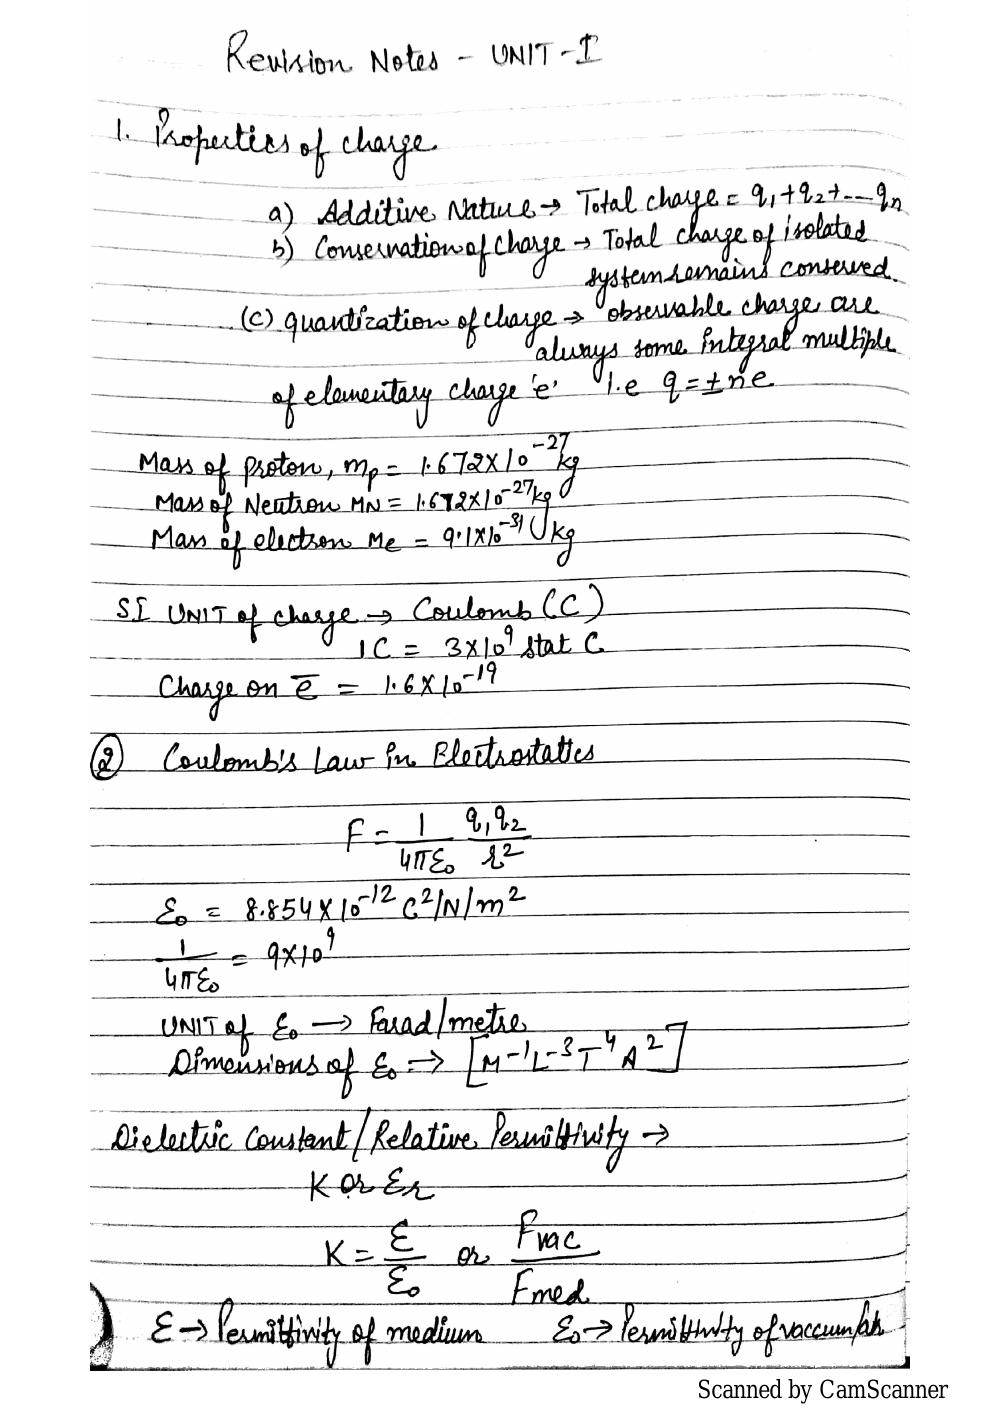 Revision Notes - UNIT-I
1. Properties of charge
a) Additive Nature → Total charge = q₁+q₂+---qₙ
b) Conservation of charge → Total charge of isolated
system remains conserved.
(c) quantization of charge → observable charge are
always some integral multiple
of elementary charge 'e' i.e q = ±ne
Mass of proton, mp = 1.672×10⁻²⁷kg
Mass of Neutron MN = 1.672×10⁻²⁷kg
Mass of electron Me = 9.1×10⁻³¹kg
S.I UNIT of charge → Coulomb (C)
1C = 3×10⁹ stat C
Charge on e̅ = 1.6×10⁻¹⁹
② Coulomb's Law in Electrostatics
F = 1/4πε₀ q₁q₂/r²
ε₀ = 8.854×10⁻¹² C²/N/m²
1/4πε₀ = 9×10⁹
UNIT of ε₀ → Farad/metre
Dimensions of ε₀ → [M⁻¹L⁻³T⁴A²]
Dielectric Constant/Relative Permittivity →
K or εr
K = ε/ε₀ or Fvac/Fmed
ε → Permittivity of medium ε₀ → Permittivity of vaccum/air
Scanned by CamScanner